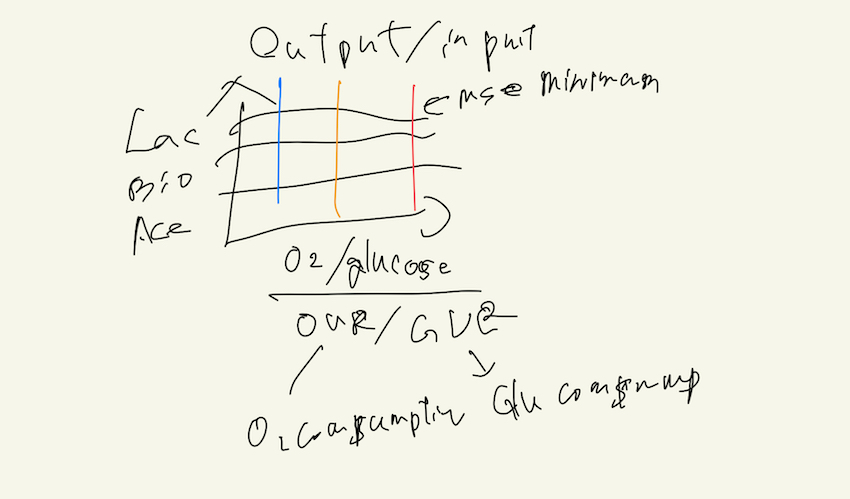 Output/input
← mse minimum
Lac
Bio
Ace
O2/glucose
OUR/GUR
O2 consumption Glu consump